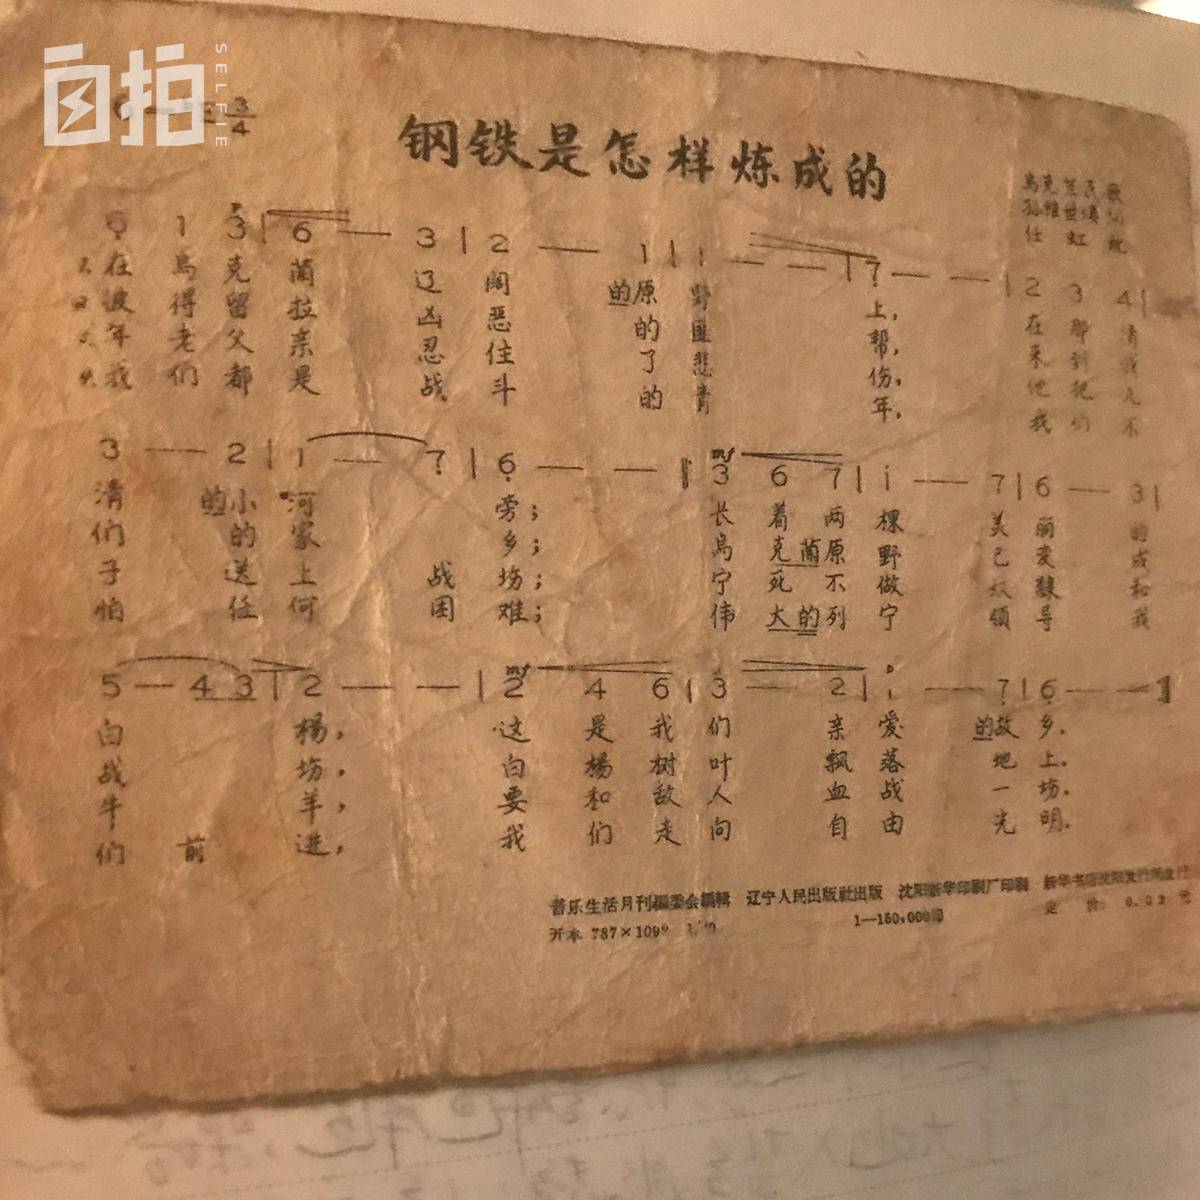 自拍
SELFIE
3/4
钢铁是怎样炼成的
乌克兰民歌
孙维世 词
任虹 配
6 1 3 | 6 — 3 | 2 — 1 | 1 — — | 7 — — | 2 3 4 |
在乌克 蘭 辽 阔 的原 野 上, 在那清
被得留 拉 凶 恶 的 匪 帮, 来到我
年老父 亲 忍 住 了 悲 伤, 他把儿
我们都 是 战 斗 的 青 年, 我们不
3 — 2 | 1 — 7 | 6 — — | 3 6 7 | 1 — 7 | 6 — 3 |
清 的小 河 旁; 长着两 棵 美 丽 的
们 的 家 乡; 乌克蘭原 野 已 变 成
子 送 上 战 场; 宁死不 做 奴 隸 和
怕 任 何 困 难; 伟大的列 宁 领 导 我
5 — 4 3 | 2 — — | 2 4 6 | 3 — 2 | 1 — 7 | 6 — —
白 杨, 这是我 们 亲 爱 的故 乡.
战 场, 白杨树 叶 飘 落 地 上.
牛 羊, 要和敌 人 血 战 一 场.
们 前 进, 我们走 向 自 由 光 明.
音乐生活月刊编委会编辑 辽宁人民出版社出版 沈阳新华印刷厂印刷 新华书店沈阳发行所发行
开本 787×1092 1—150,000印 定 价: 0.02 元